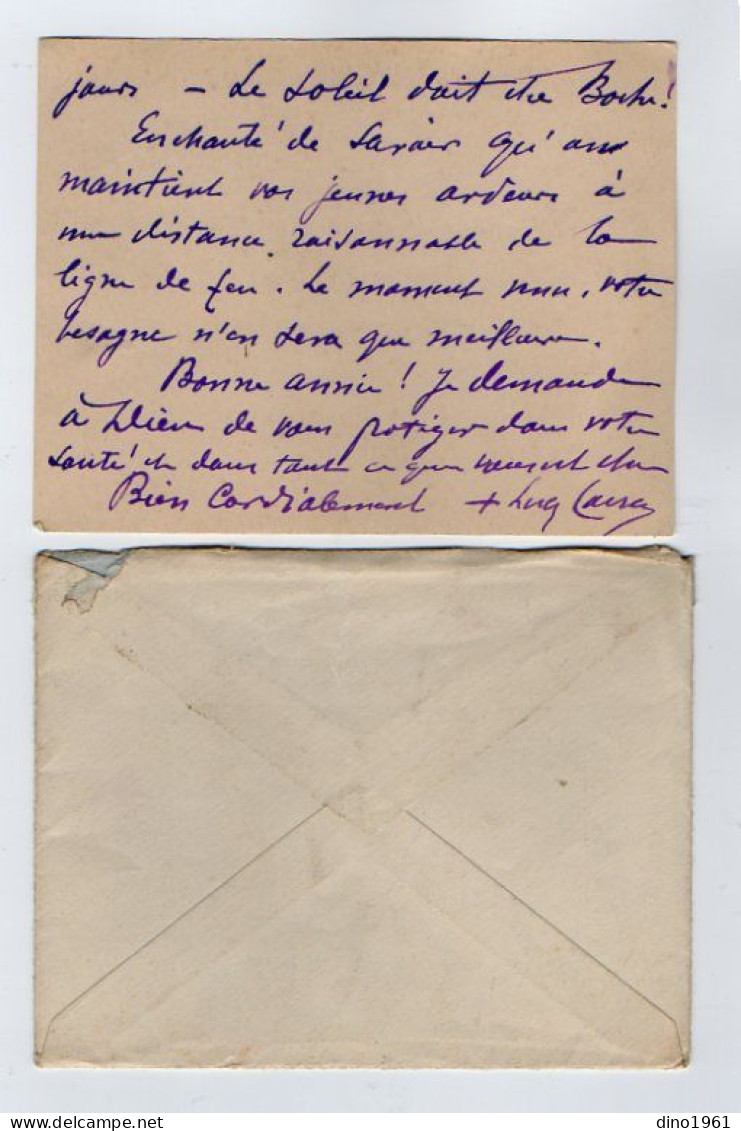 jours — Le soleil doit être Boche !
Enchanté de savoir qu'on
maintient vos jeunes ardeurs à
une distance raisonnable de la
ligne de feu. Le moment venu, votre
besogne n'en sera que meilleure.
Bonne année ! Je demande
à Dieu de vous protéger dans votre
santé et dans tout ce que vous
Bien Cordialement +
dino1961